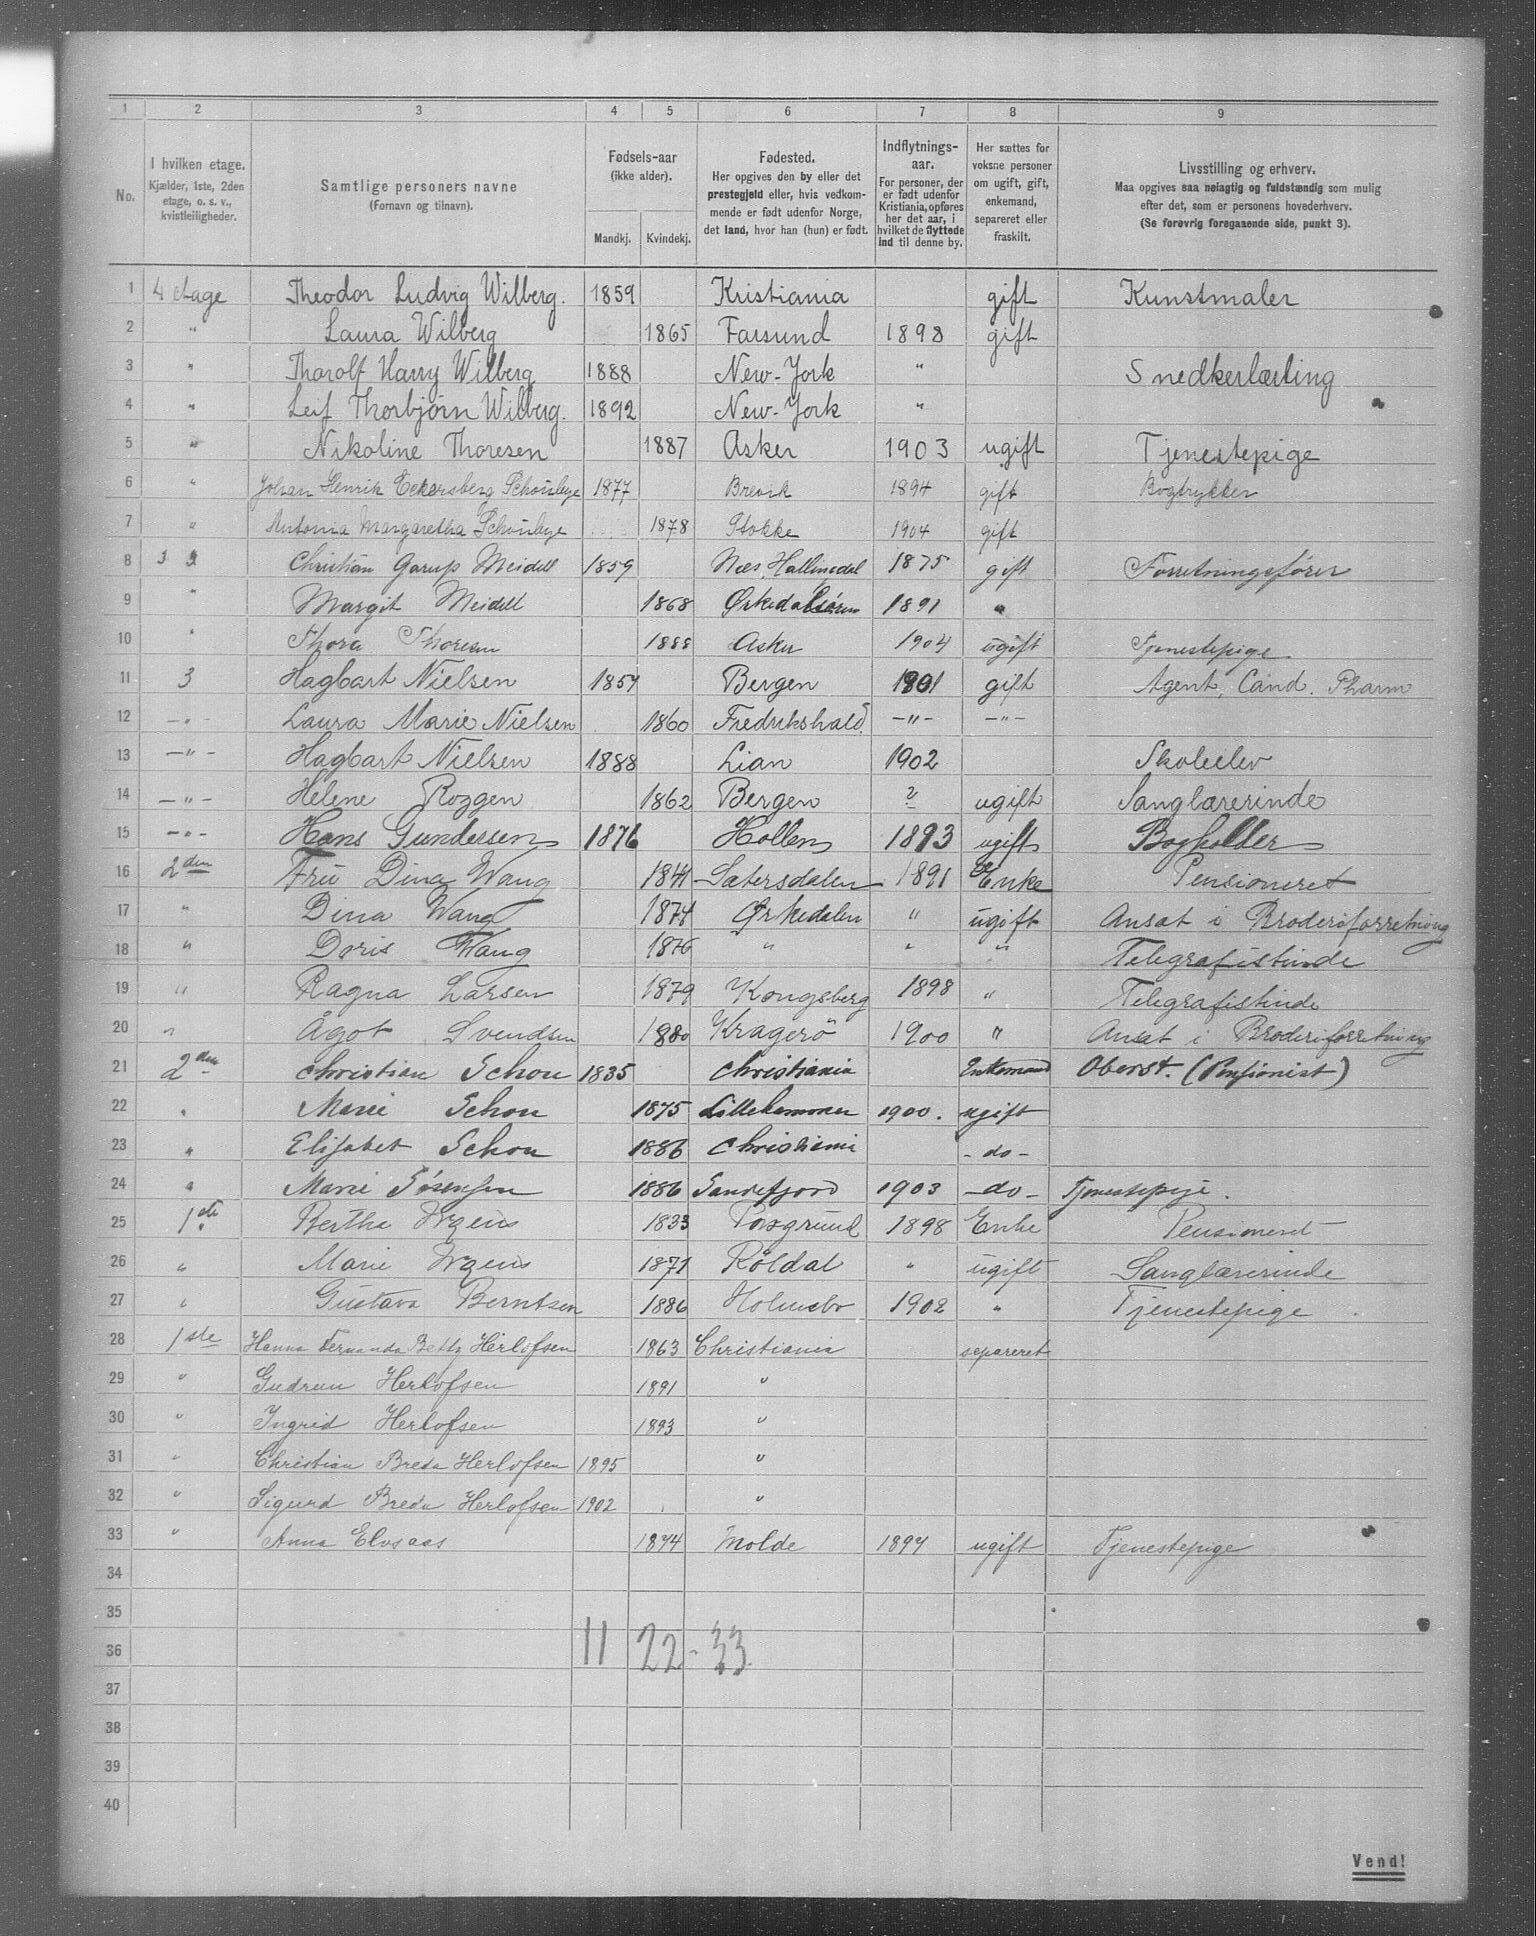 1 2 3 4 5 6 7 8 9
No.
I hvilken etage.
Kjælder, 1ste, 2den
etage, o. s. v.,
kvistleiligheder.
Samtlige personers navne
(Fornavn og tilnavn).
Fødsels-aar
(ikke alder).
Mandkj. Kvindekj.
Fødested.
Her opgives den by eller det
prestegjeld eller, hvis vedkom-
mende er født udenfor Norge,
det land, hvor han (hun) er født.
Indflytnings-
aar.
For personer, der
er født udenfor
Kristiania, opføres
her det aar, i
hvilket de flyttede
ind til denne by.
Her sættes for
voksne personer
om ugift, gift,
enkemand,
separeret eller
fraskilt.
Livsstilling og erhverv.
Maa opgives saa nøiagtig og fuldstændig som mulig
efter det, som er personens hovederhverv.
(Se forøvrig foregaaende side, punkt 3).
1 4 etage Theodor Ludvig Wilberg. 1859 Kristiania gift Kunstmaler
2 " Laura Wilberg 1865 Farsund 1898 gift
3 " Thorolf Harry Wilberg 1888 New-York " Snedkerlærling
4 " Leif Thorbjørn Wilberg. 1892 New-York "
5 " Nikoline Thoresen 1887 Asker 1903 ugift Tjenestepige
6 " Johan Henrik Eckersberg 1877 Brevik 1894 gift Bogtrykker
7 " Antonia Margaretha 1878 Stokke 1904 gift
8 3 Christian Garup Meidell 1859 Næs, Hallingdal 1875 gift Forretningsfører
9 " Margit Meidell 1868 Ørkedalsøren 1891 "
10 " Thora Thoresen 1888 Asker 1904 ugift Tjenestepige.
11 3 Hagbart Nielsen 1857 Bergen 1901 gift Agent, Cand. Pharm
12 -"- Laura Marie Nielsen 1860 Fredrikshald. -"- -"-
13 -"- Hagbart Nielsen 1888 Lian 1902 Skoleelev
14 -"- Helene Roggen 1862 Bergen ? ugift Sanglærerinde
15 -"- Hans Gundersen 1876 Hollen 1893 ugift Bogholder
16 2den Fru Dina Wang 1841 Sætersdalen 1891 Enke Pensioneret
17 " Dina Wang 1874 Ørkedalen " ugift Ansat i Broderiforretning
18 " Doris Wang 1876 " " " Telegrafistinde
19 " Ragna Larsen 1879 Kongsberg 1898 " Telegrafistinde
20 " Ågot Svendsen 1880 Kragerö 1900 " Ansat i Broderiforretning
21 2den Christian Schou 1835 Christiania Enkemand Oberst. (Pensionist)
22 " Marie Schou 1875 Lillehammer 1900. ugift
23 " Elisabet Schou 1886 Christiania -do-
24 " Marie Sørensen 1886 Sandefjord 1903 -do- Tjenestepige.
25 1ste Berthe Irgens 1833 Porsgrund 1898 Enke Pensioneret
26 " Marie Irgens 1871 Röldal " ugift Sanglærerinde
27 " Gustava Berntsen 1886 Holmsbo 1902 " Tjenestepige
28 1ste Hanna Fernanda Betty Herlofsen 1863 Christiania separeret
29 " Gudrun Herlofsen 1891 "
30 " Ingrid Herlofsen 1893 "
31 " Christian Breda Herlofsen 1895 "
32 " Sigurd Breda Herlofsen 1902 "
33 " Anna Elvsaas 1874 Molde 1897 ugift Tjenestepige
34
35
36 11 22 - 33.
37
38
39
40
Vend!